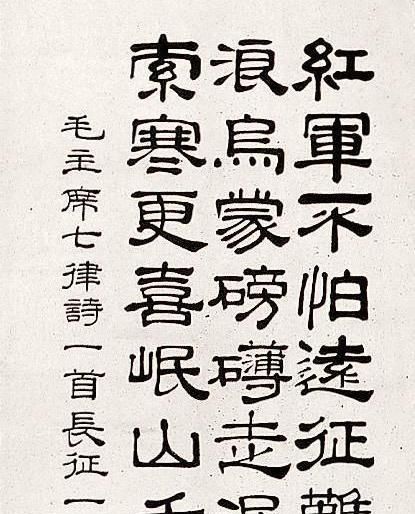 紅軍不怕遠征難
浪烏蒙磅礴走泥
索寒更喜岷山千
毛主席七律詩一首長征一